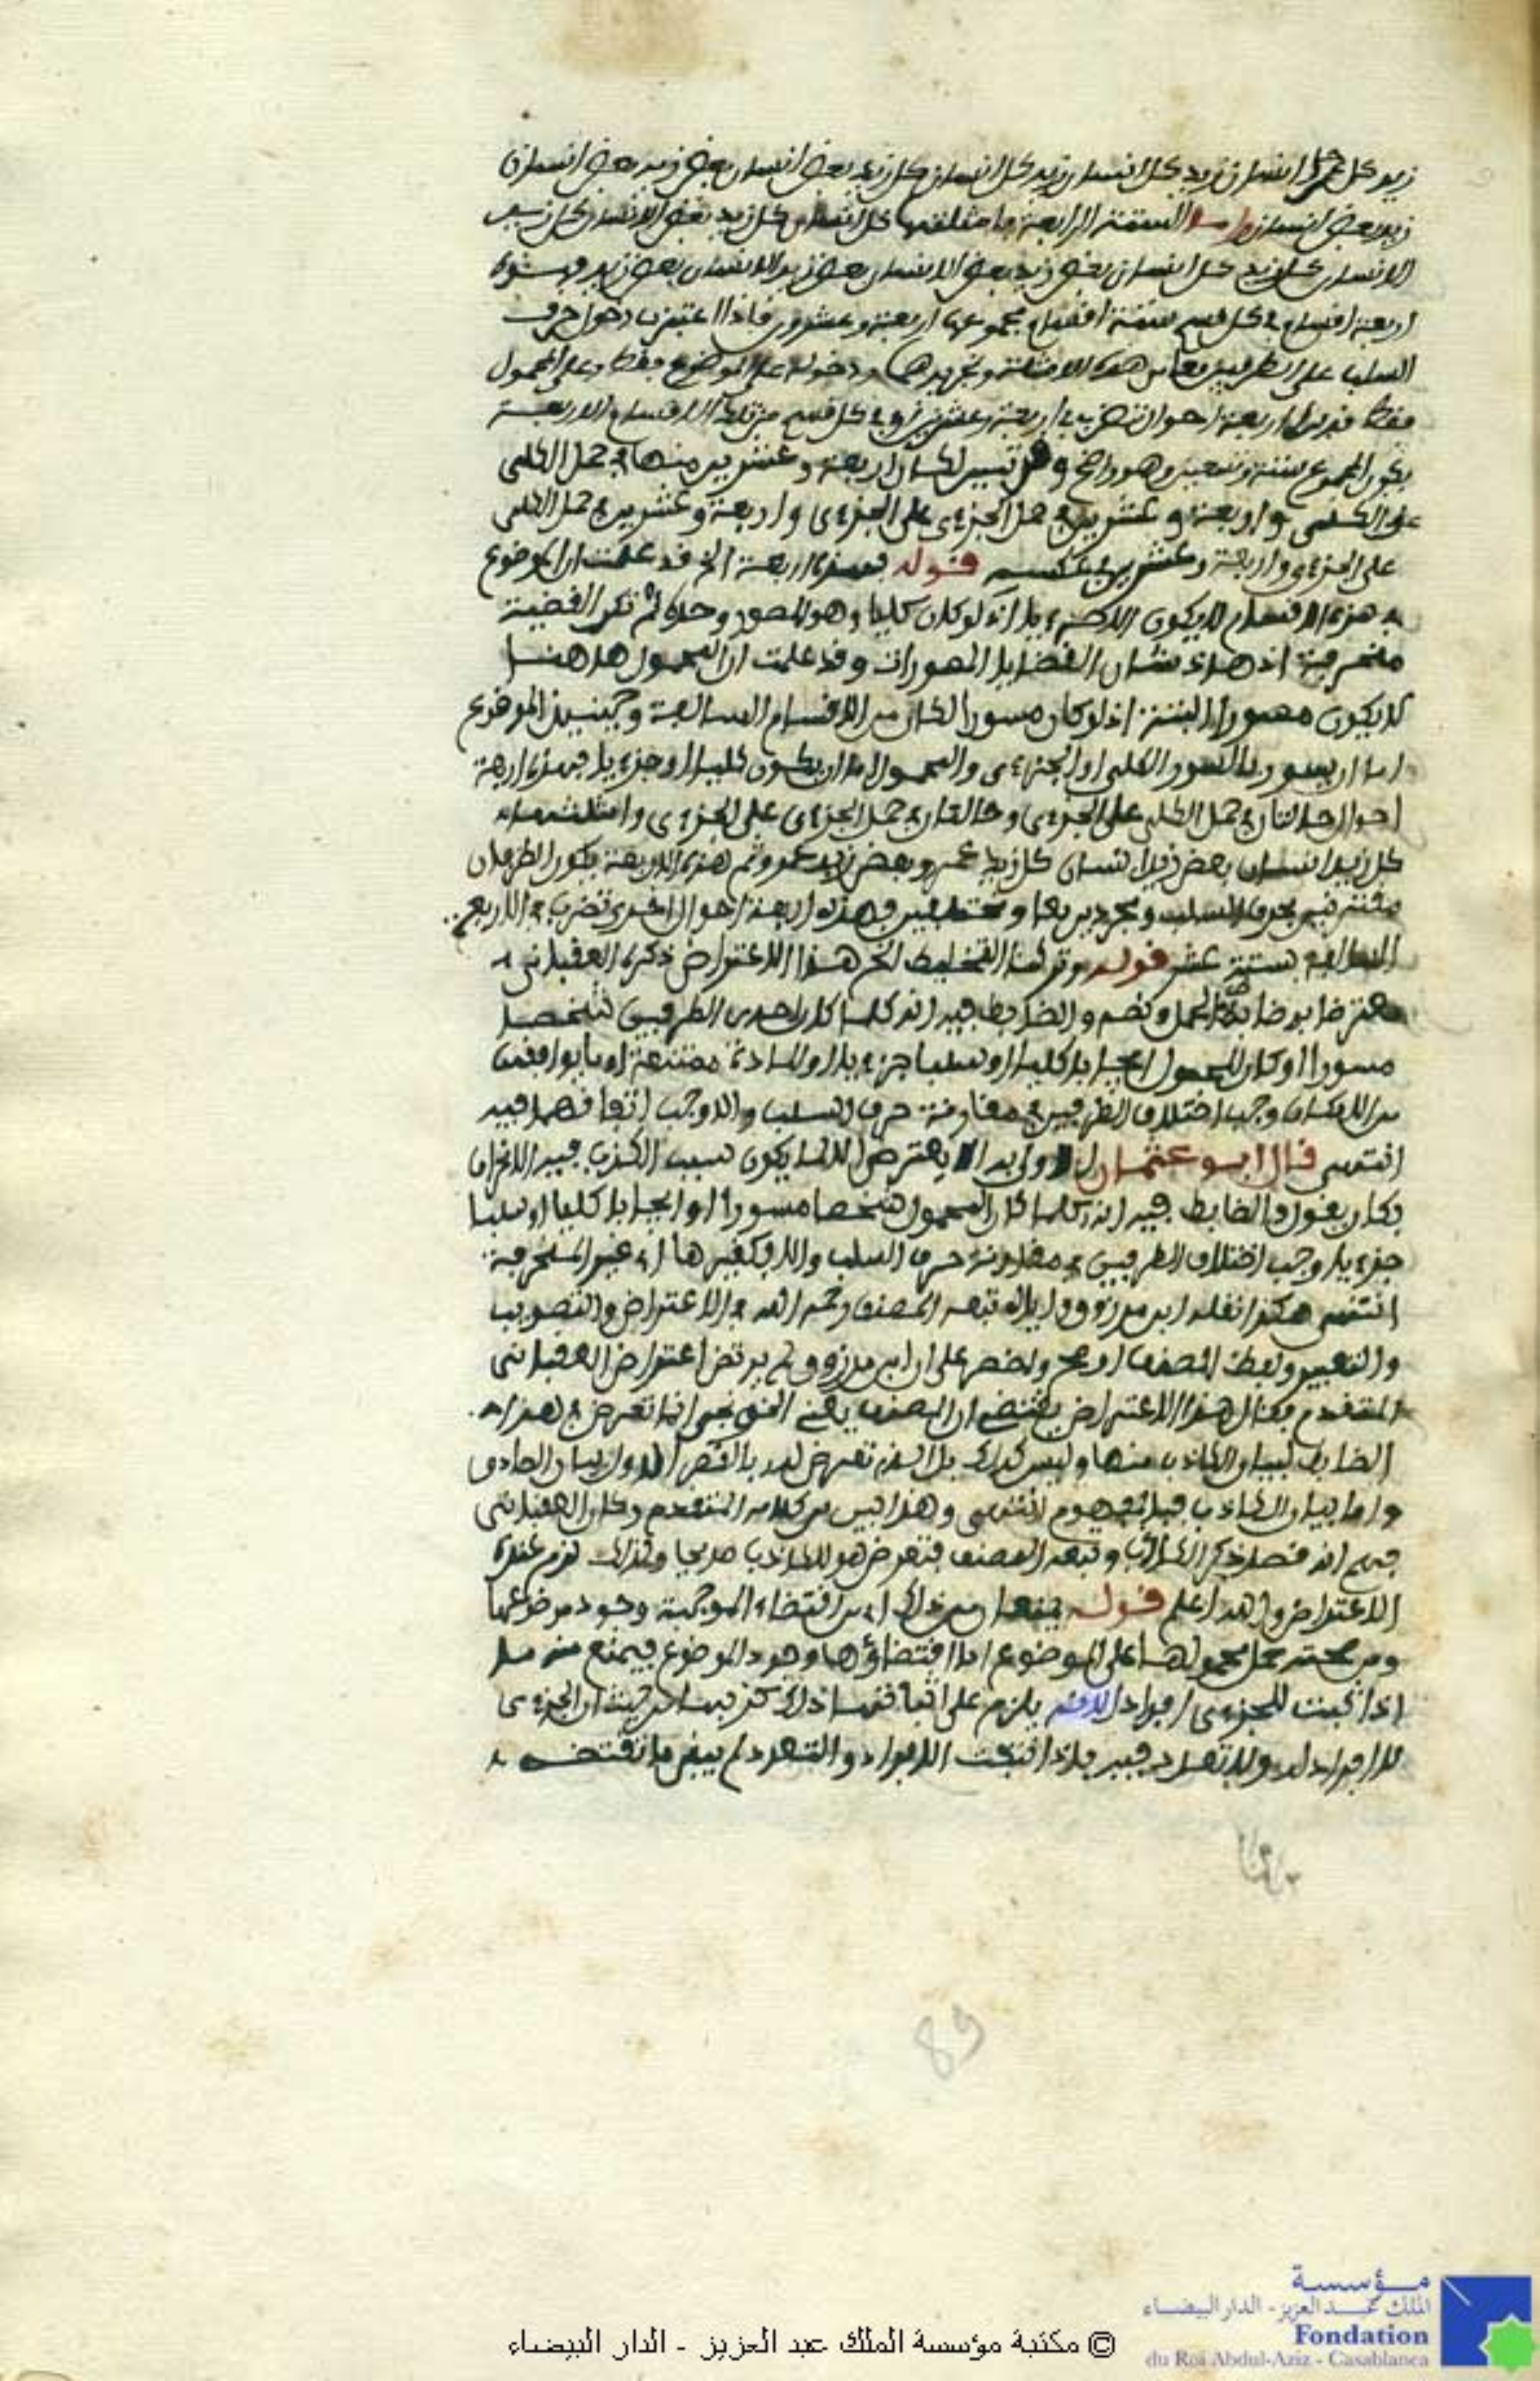 زيد كل انسان زيد كل انسان زيد كل انسان كل زيد بعض انسان بعض زيد بعض انسان
زيد بعض انسان واما الستة الرابعة فامثلتها كل انسان كل زيد بعض الانسان كل زيد
الانسان كل زيد كل انسان بعض زيد بعض الانسان بعض زيد الانسان بعض زيد فهذه
اربعة اقسام في كل قسم ستة اقسام مجموعها اربعة وعشرون فاذا اعتبرت دخول حرف
السلب على الطرفين معا من هذه الامثلة وتجريدهما ودخوله على الموضوع فقط وعلى المحمول
فقط فهذه اربعة احوال تضرب في اربعة وعشرين وفي كل قسم من تلك الاقسام الاربعة
يكون المجموع ستة وتسعين وهو واضح وقد تبين لك ان اربعة وعشرين منها في حمل الكلي
على الكلي واربعة وعشرين في حمل الجزءي على الجزءي واربعة وعشرين في حمل الكلي
على الجزءي واربعة وعشرين في عكسه قوله فهذه اربعة الخ قد علمت ان الموضوع
في هذه الاقسام لا يكون الا جزءيا اذ لو كان كليا وهو المسور وحده لم تكن القضية
منحرفة اذ هذا شان القضايا المسورات وقد علمت ان المحمول هاهنا
لا يكون مسورا البتة اذ لو كان مسورا لكان من الاقسام السابقة وحينئذ الموضوع
اما ان يسور بالسور الكلي او الجزءي والمحمول اما ان يكون كليا او جزءيا فهذه اربعة
احوال حالتان في حمل الكلي على الجزءي وحالتان في حمل الجزءي على الجزءي وامثلتها
كل زيد انسان بعض زيد انسان كل زيد عمرو بعض زيد عمرو ثم هذه الاربعة يكون الطرفان
مقترنين بحرف السلب ومجردين معا ومختلفين فهذه اربعة احوال اخرى تضرب في الاربع
السالفة بستة عشر قوله وتركنا التخليط الخ هذا الاعتراض ذكره العقباني
معترضا به ضابط الجمل ونصه والضابط فيه انه كلما كان احد الطرفين شخصا
مسورا او كان المحمول ايجابا كليا او سلبا جزءيا او المادة ممتنعة او ما يوافقها
من الامكان وجب اختلاف الطرفين في مقارنة حرف السلب والا وجب اتفاقهما فيه
انتهى قال ابو عثمان الاولى به الا يعترض الا لما يكون سبب الكذب فيه الانحراف
فكان يقول والضابط فيه انه كلما كان المحمول شخصا مسورا او ايجابا كليا او سلبا
جزءيا وجب اختلاف الطرفين في مقارنة حرف السلب والا فكغيرها اي غير المنحرفة
انتهى هكذا نقله ابن مرزوق واياه تبع المصنف رحمه الله في الاعتراض والتصويب
والتعبير ولفظ المصنف اوضح واخصر على ان ابن مرزوق لم يرتض اعتراض العقباني
المتقدم فقال هذا الاعتراض يقتضي ان المصنف يعني الخونجي انما تعرض في هذا
الضابط لبيان الكاذب منها وليس كذلك بل الذي تعرض له بالقصد الاول بيان الصادق
واما بيان الكاذب فبالمفهوم انتهى وهذا ليس من كلامه المتقدم وكان العقباني
فهم انه قصد ذكر الكاذب وتبعه المصنف فتعرض هو للكاذب صريحا ولذلك لزم عنده
الاعتراض والله اعلم قوله يمنعان من ذلك اي من اقتضاء الموجبة وجود موضوعها
ومن صحة حمل محمولها على الموضوع اما اقتضاؤها وجود الموضوع فيمنع منه ما
اذا اثبت للجزءي افراد لانه يلزم على اثباتها ذلك كذبها من حيث ان الجزءي
لا افراد له ولا تعدد فيه فاذا اثبتت الافراد والتعدد لم يبق ما تقتضيه
89
مؤسسة
الملك عبد العزيز - الدار البيضاء
Fondation
du Roi Abdul-Aziz - Casablanca
© مكتبة مؤسسة الملك عبد العزيز - الدار البيضاء